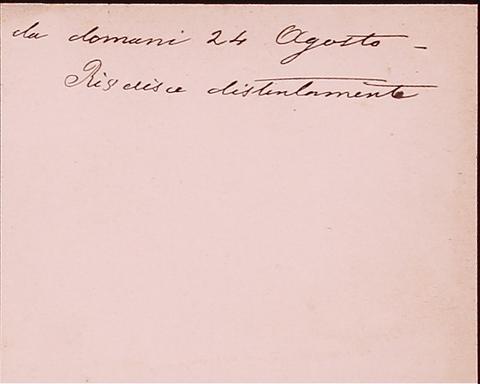 da domani 24 Agosto -
distintamente